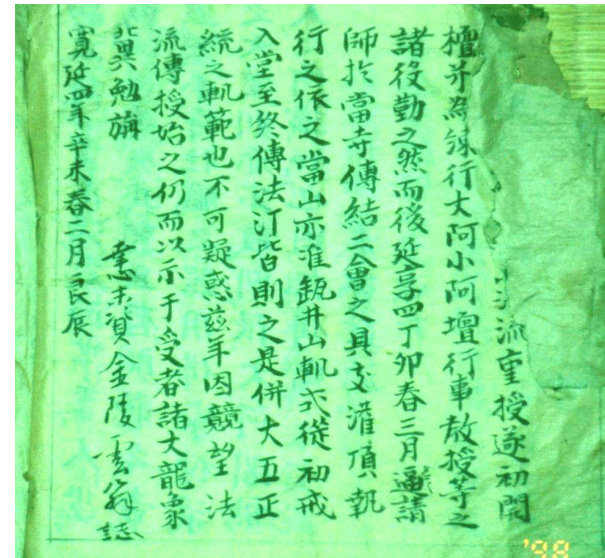 流重授遂初開
檀并為錬行大阿小阿壇行事教授等之
諸役勤之然而後延享四丁卯春三月 請
師於當寺傳結二會之具支灌頂執
行之依之當山亦准瓶井山軌式從初戒
入堂至終傳法汀皆則之是併大五正
統之軌範也不可疑惑茲年因競望法
流傳授始之仍而以示于受者諸大龍象
冀勉旃
金陵雲翁誌
寛延四年辛未春二月良辰
'98